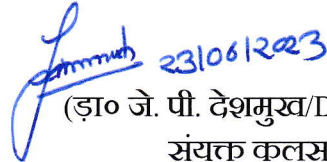 23/06/2023
(ड़ा० जे. पी. देशमुख/D
संयुक्त कुलस